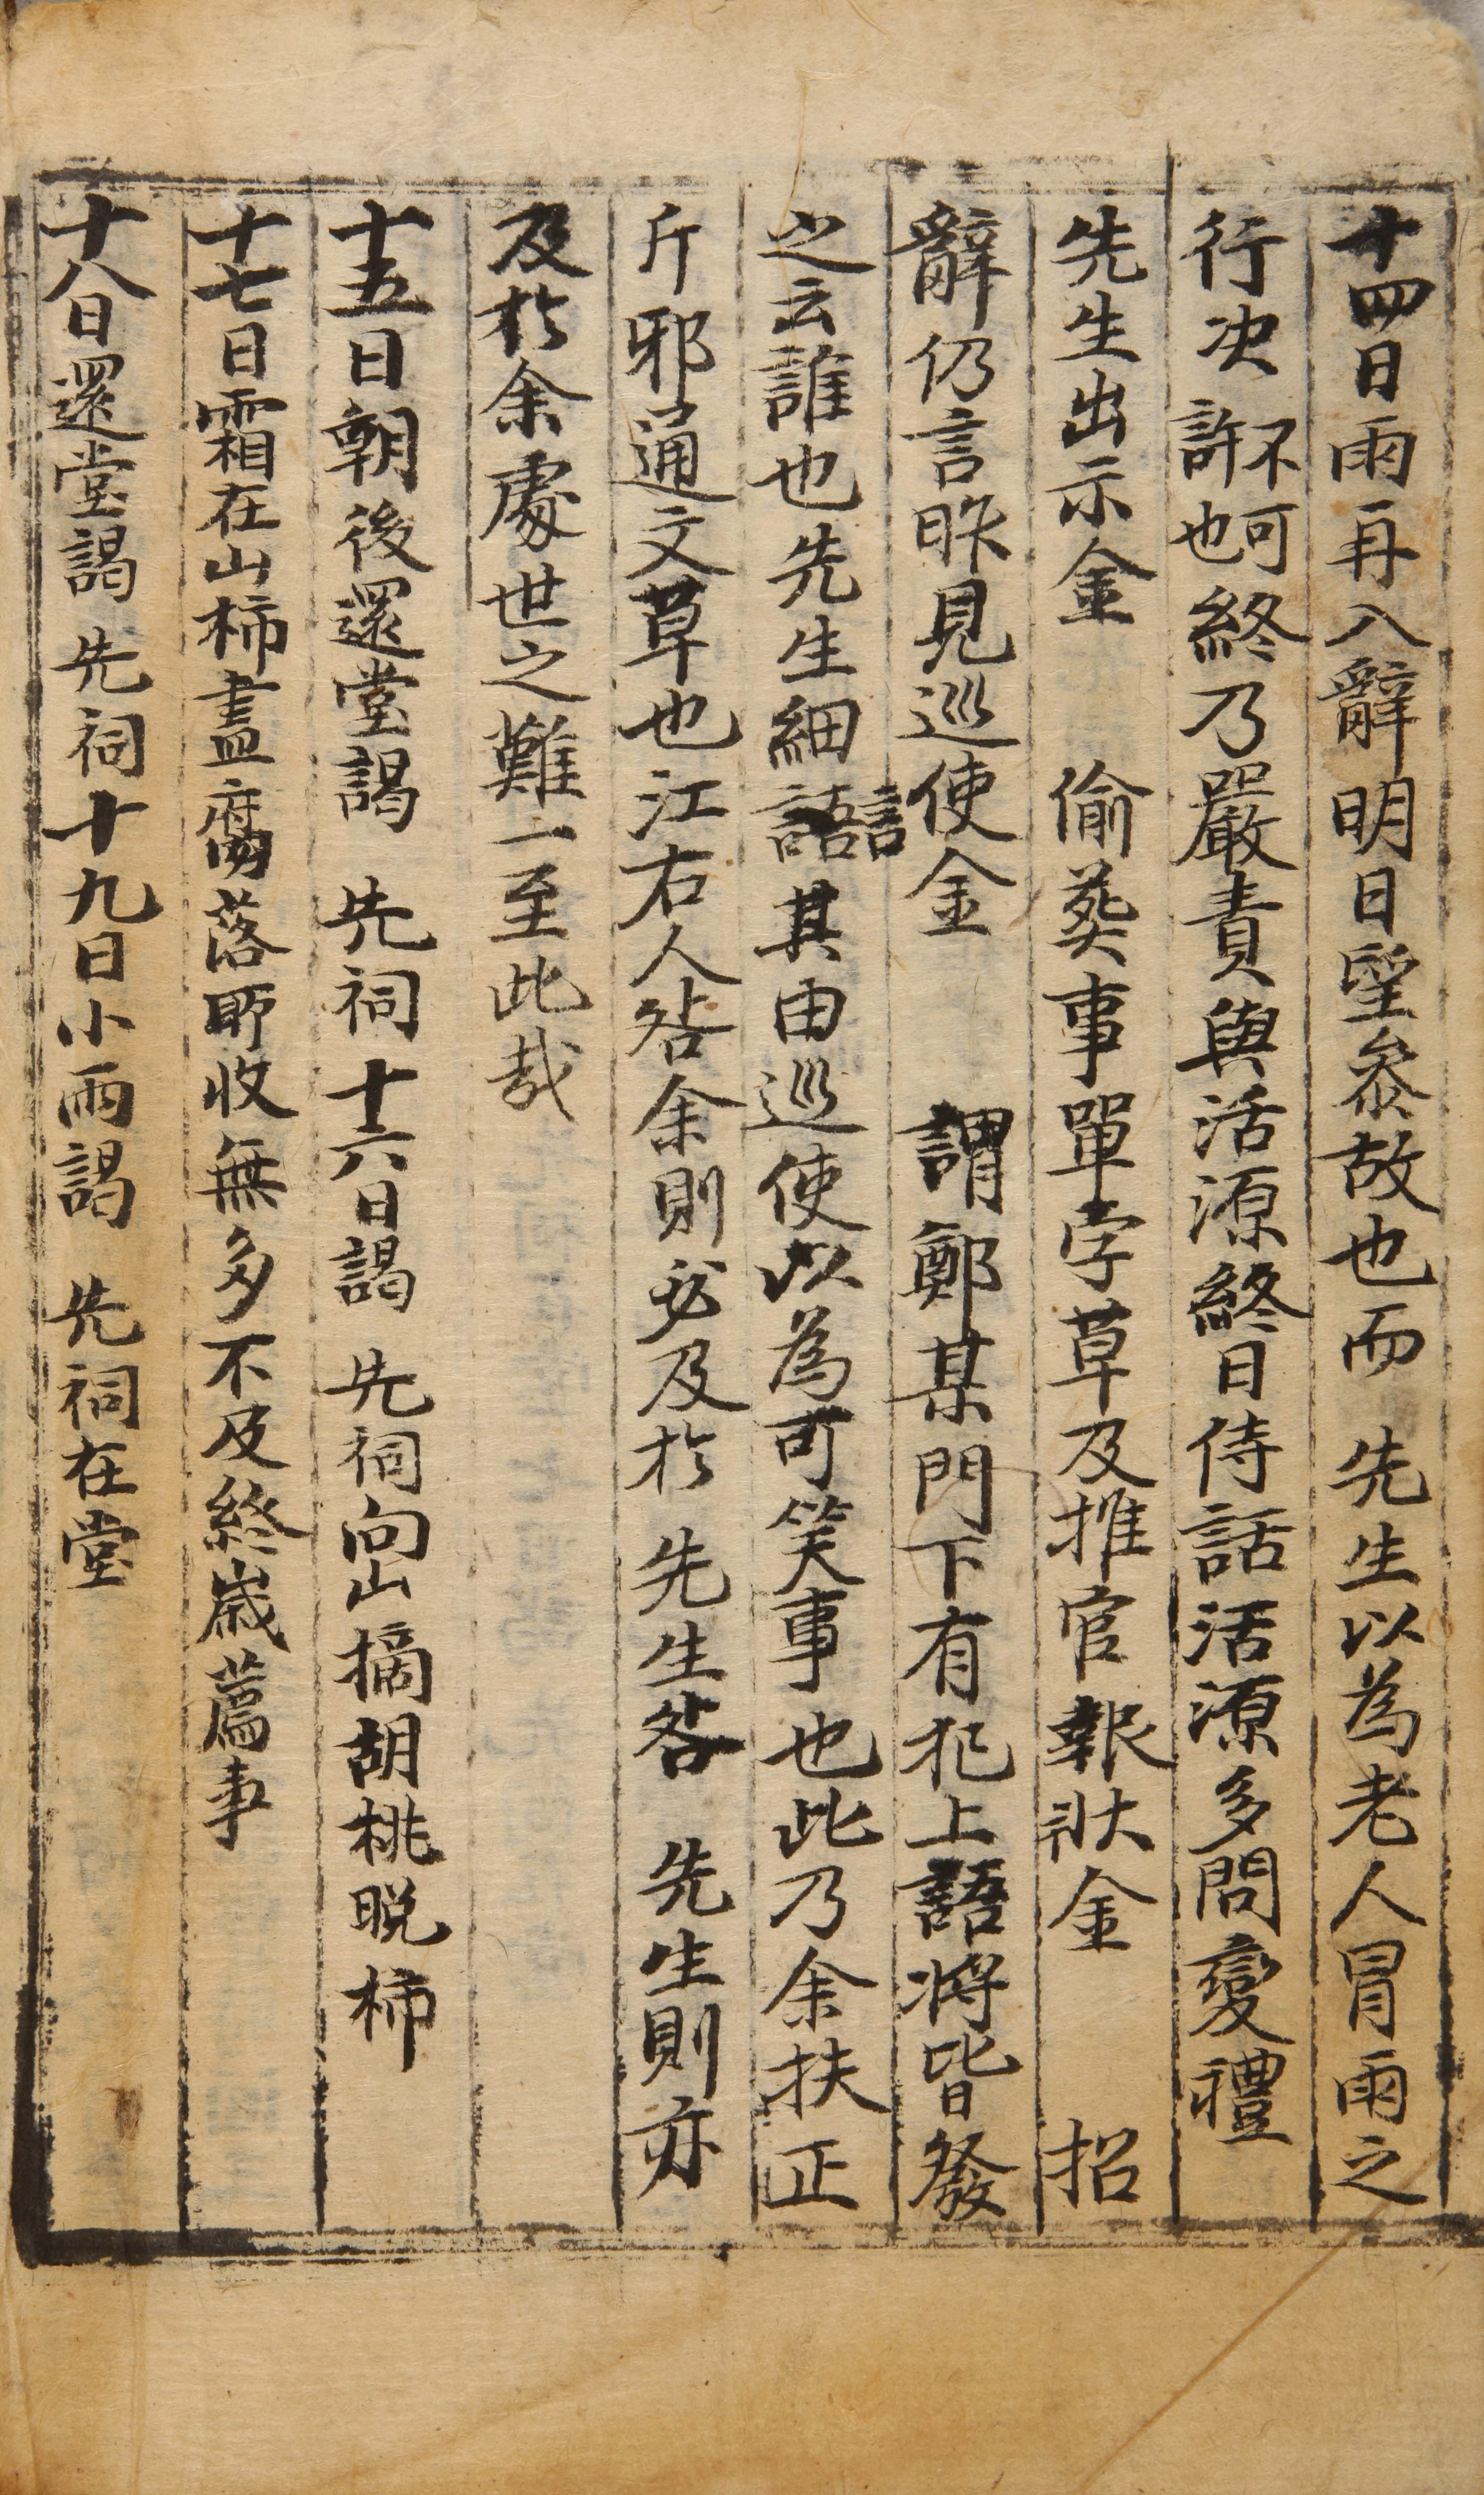 十四日雨再入辭明日望參故也而 先生以為老人冒雨之
行决不可許也終乃嚴責與活源終日侍話活源多問變禮
先生出示金 偷葬事單字草及推官報狀金 招
辭仍言昨見巡使金 謂鄭某門下有犯上語將皆發
之云誰也先生細語言其由巡使以為可笑事也此乃余扶正
斥邪通文草也江右人咎余則必及於 先生咎 先生則亦
及於余處世之難一至此哉
十五日朝後還堂謁 先祠十六日謁 先祠向山摘胡桃脫柿
十七日霜在山柿盡腐落所收無多不及終歲薦事
十八日還堂謁 先祠十九日小雨謁 先祠在堂